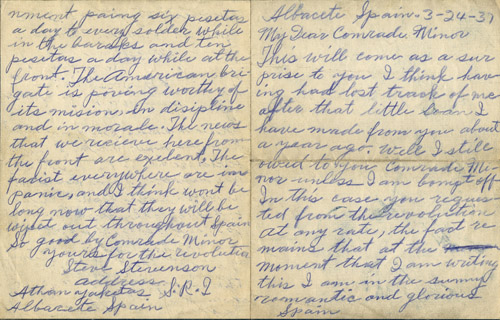 Albacete Spain. 3-24-37
My Dear Comrade Minor
This will come as a sur
prise to you I think hav
ing had lost track of me
after that little Loan I
have made from you about
a year ago. Well I still
owed to you Comrade Mi-
nor unless I am bompt off
In this case you reques-
ted from the revolution
at any rate, the fact re
mains that at the
moment that I am writing
this I am in the sunny
romantic and glorious
Spain
nment paing six pesetas
a day to every solder while
in the baraks and ten
pesetas a day while at the
front. The American bri-
gate is poving worthy of
its mision, in disipline
and in morale. The news
that we recieve here from
the front are exelent, The
facist everywhere are in
panic, and I think wont be
long now that they will be
wipet out throughout Spain
So good by Comrade Minor
yours for the revolution
Steve Stevenson
address
Athan S.R.I
Albacete Spain